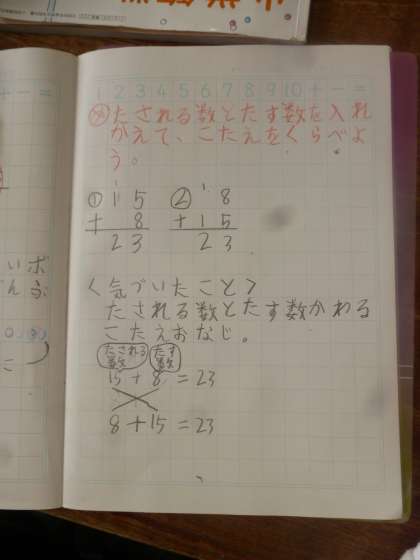 1 2 3 4 5 6 7 8 9 10 + - =
め たされる数とたす数を入れ
かえて、こたえをくらべよ
う。
① 15 ② 8
+ 8 + 15
23 23
<気づいたこと>
たされる数とたす数かわる
こたえおなじ。
たされる数 たす数
15 + 8 = 23
8 + 15 = 23